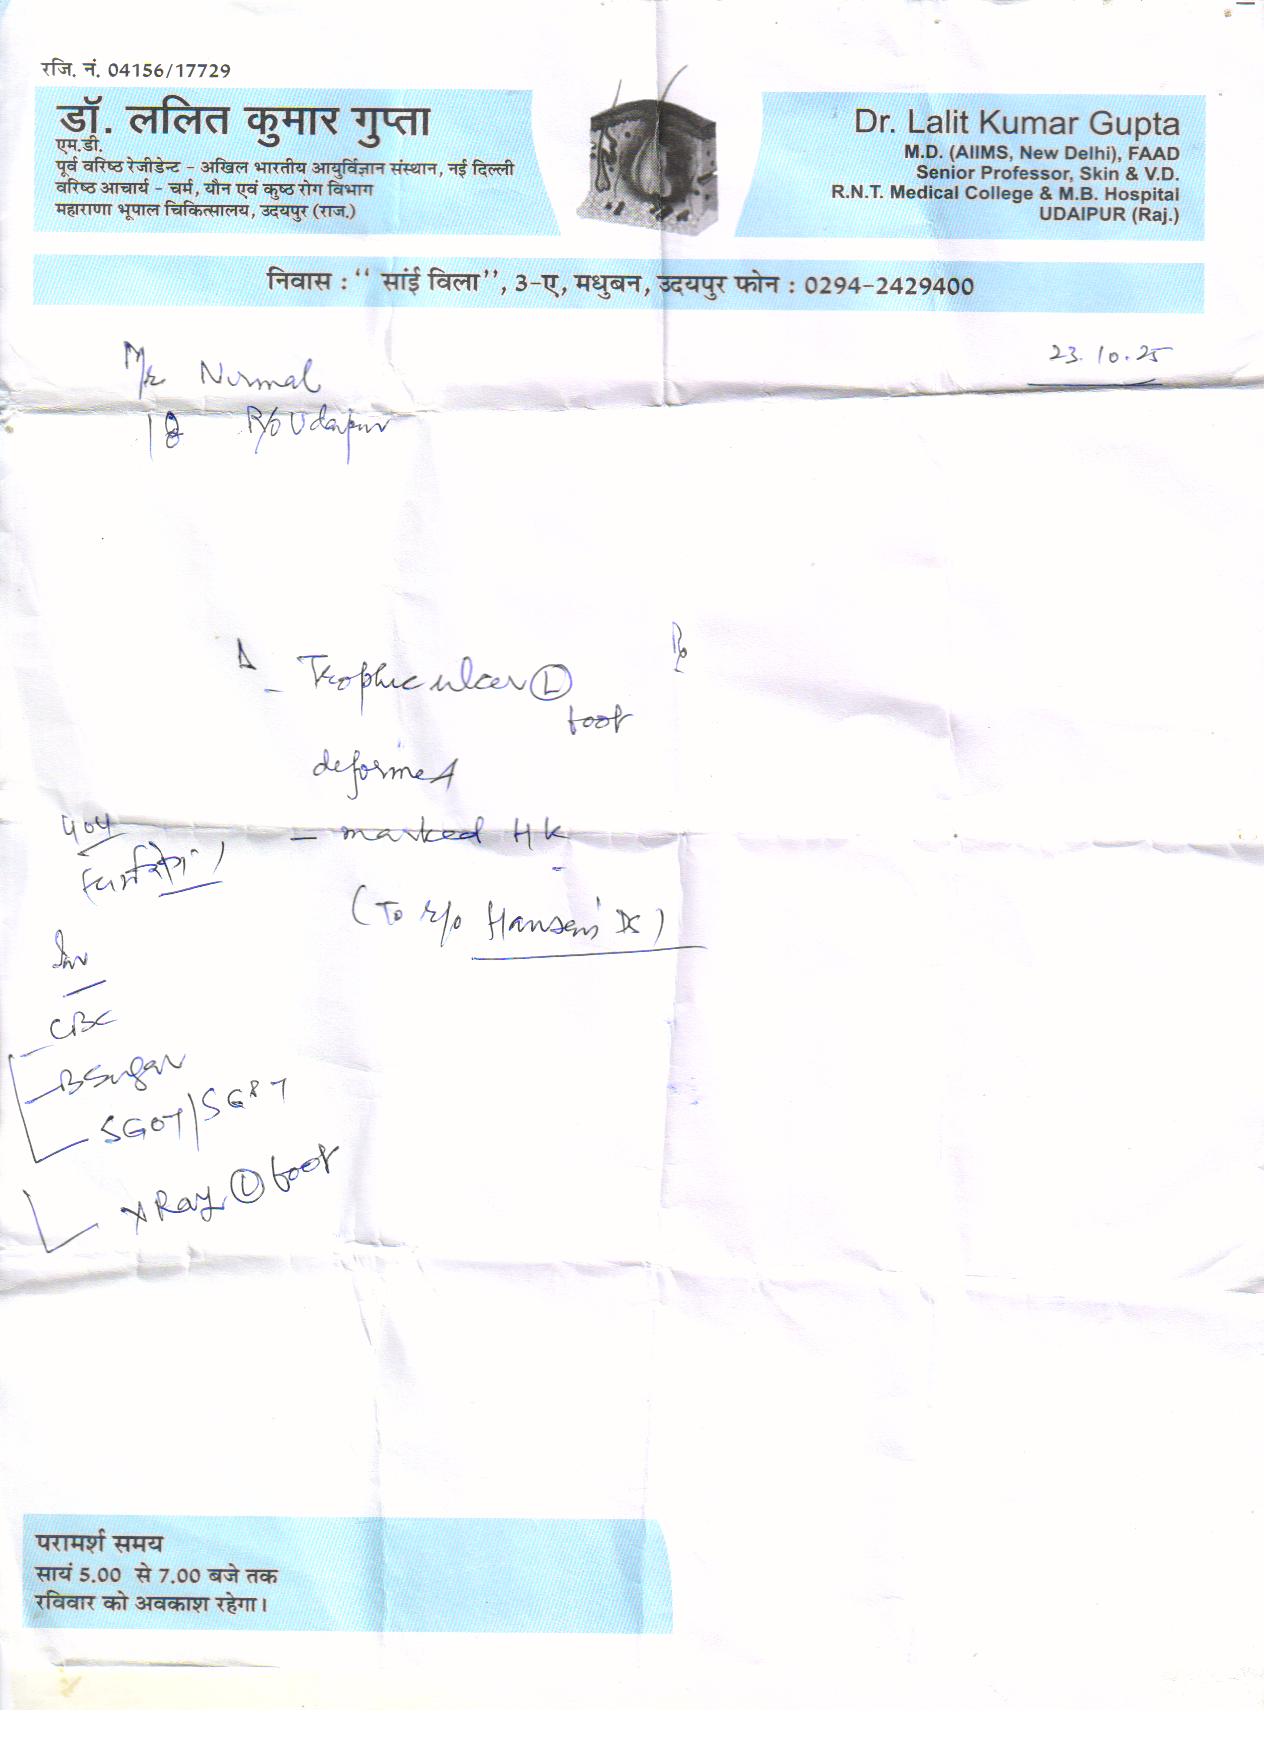 रजि. नं. 04156/17729
डॉ. ललित कुमार गुप्ता
एम.डी.
पूर्व वरिष्ठ रेजीडेन्ट - अखिल भारतीय आयुर्विज्ञान संस्थान, नई दिल्ली
वरिष्ठ आचार्य - चर्म, यौन एवं कुष्ठ रोग विभाग
महाराणा भूपाल चिकित्सालय, उदयपुर (राज.)
Dr. Lalit Kumar Gupta
M.D. (AIIMS, New Delhi), FAAD
Senior Professor, Skin & V.D.
R.N.T. Medical College & M.B. Hospital
UDAIPUR (Raj.)
निवास : “ सांई विला”, 3-ए, मधुबन, उदयपुर फोन : 0294-2429400
23.10.25
Mr Nirmal
18 R/o Udaipur
Δ - Trophic ulcer Ⓛ
foot
- marked HK
(To r/o Hansen's Ds)
Inv
CBC
B Sugar
SGOT/SGPT
X Ray Ⓛ foot
परामर्श समय
सायं 5.00 से 7.00 बजे तक
रविवार को अवकाश रहेगा।